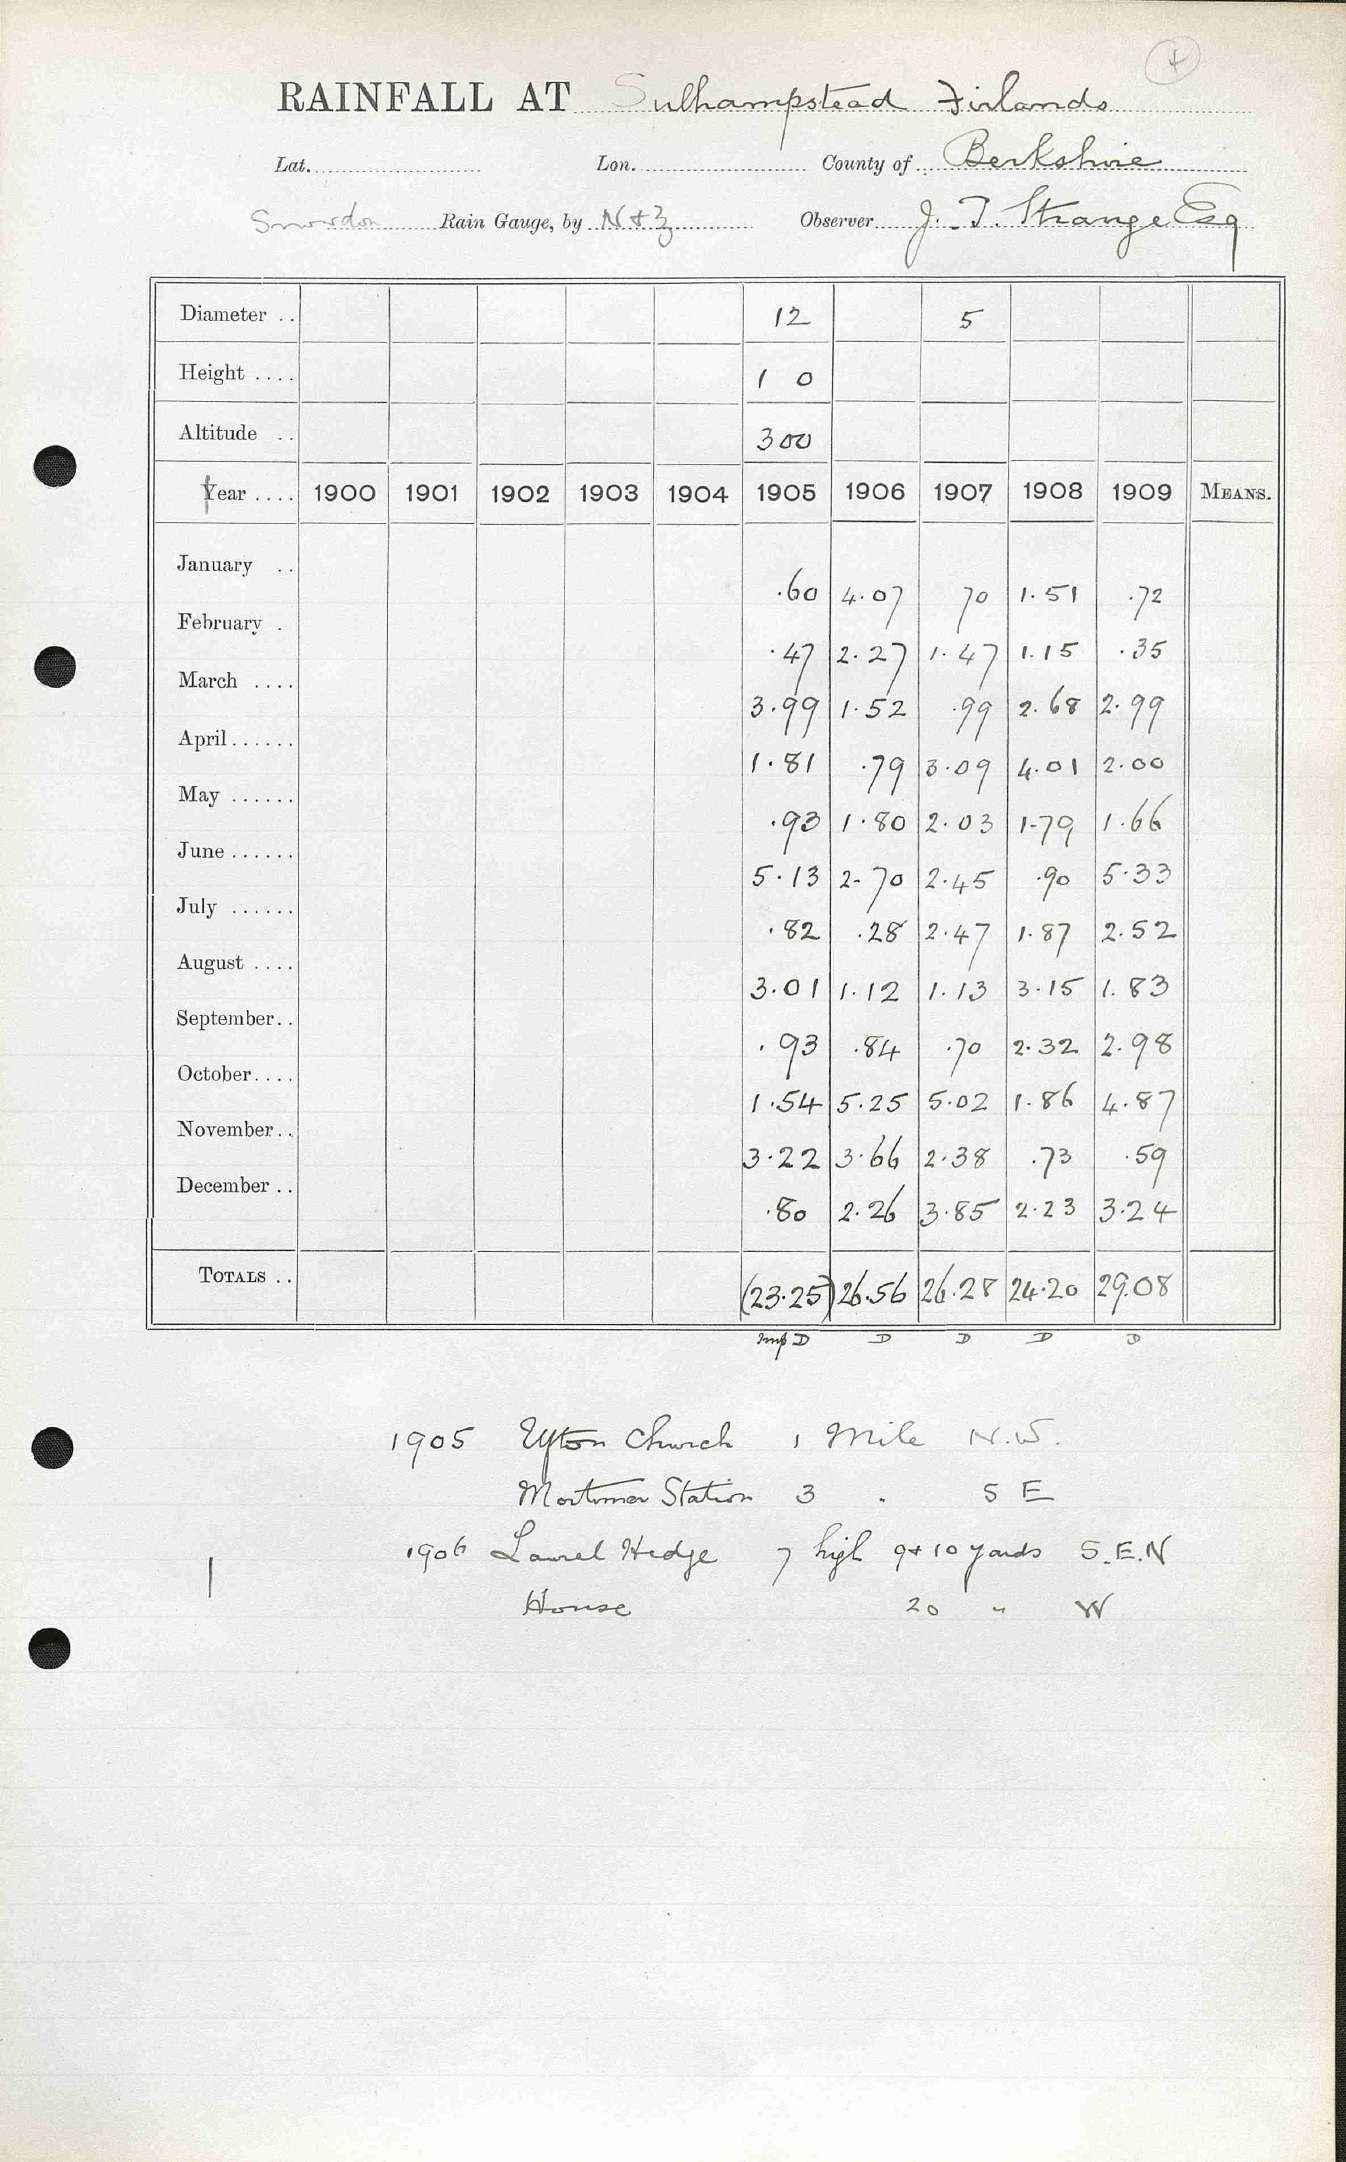 4
RAINFALL AT Sulhampstead Firlands
Lat. Lon. County of Berkshire
Snowdon Rain Gauge, by N & Z Observer J. T. Strange Esq
Diameter .. 12 5
Height .... 1 0
Altitude .. 300
Year .... 1900 1901 1902 1903 1904 1905 1906 1907 1908 1909 MEANS.
January .. .60 4.07 70 1.51 .72
February . .47 2.27 1.47 1.15 .35
March .... 3.99 1.52 .99 2.68 2.99
April ...... 1.81 .79 3.09 4.01 2.00
May ...... .93 1.80 2.03 1.79 1.66
June ...... 5.13 2.70 2.45 .90 5.33
July ...... .82 .28 2.47 1.87 2.52
August .... 3.01 1.12 1.13 3.15 1.83
September.. .93 .84 .70 2.32 2.98
October.... 1.54 5.25 5.02 1.86 4.87
November.. 3.22 3.66 2.38 .73 .59
December .. .80 2.26 3.85 2.23 3.24
TOTALS .. (23.25) 26.56 26.28 24.20 29.08
Imp D D D D D
1905 Ufton Church 1 Mile N.W.
Mortimer Station 3 " S E
1906 Laurel Hedge 7 high 9 & 10 yards S.E.N
House 20 " W